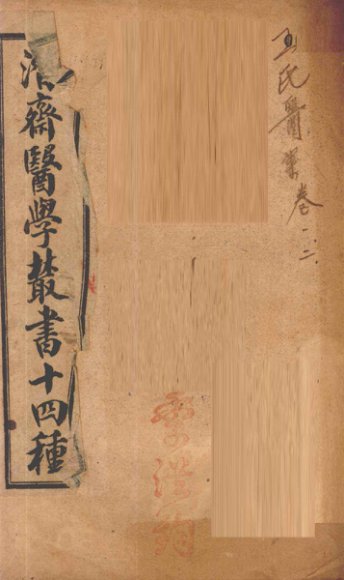 王氏醫案卷一二
齋醫學叢書十四種